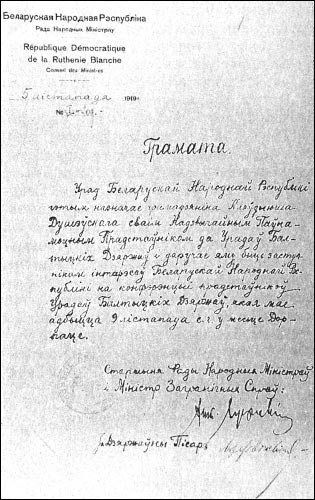 Беларуская Народная Рэспубліка
Рада Народных Міністраў
République Démocratique
de la Ruthenie Blanche
Conseil des Ministres
5 лістапада 1919
№
Грамата.
Урад Беларускай Народнай Рэспублікі
гэтым назначае грамадзяніна Клаўдыюша
Душэўскага сваім Надзвычайным Паўна-
моцным Прадстаўніком да Урадаў Бал-
тыцкіх Дзяржаў і даручае яму быць заступ-
ніком інтарэсаў Беларускай Народнай Рэ-
публікі на конфэрэнцыі прадстаўнікоў
Урадаў Балтыцкіх Дзяржаў, якая мае
адбыцца 9 лістапада с.г. у месце Дор-
паце.
Старшыня Рады Народных Міністраў
і Міністр Заграні́чных Спраў:
Дзяржаўны Пісар